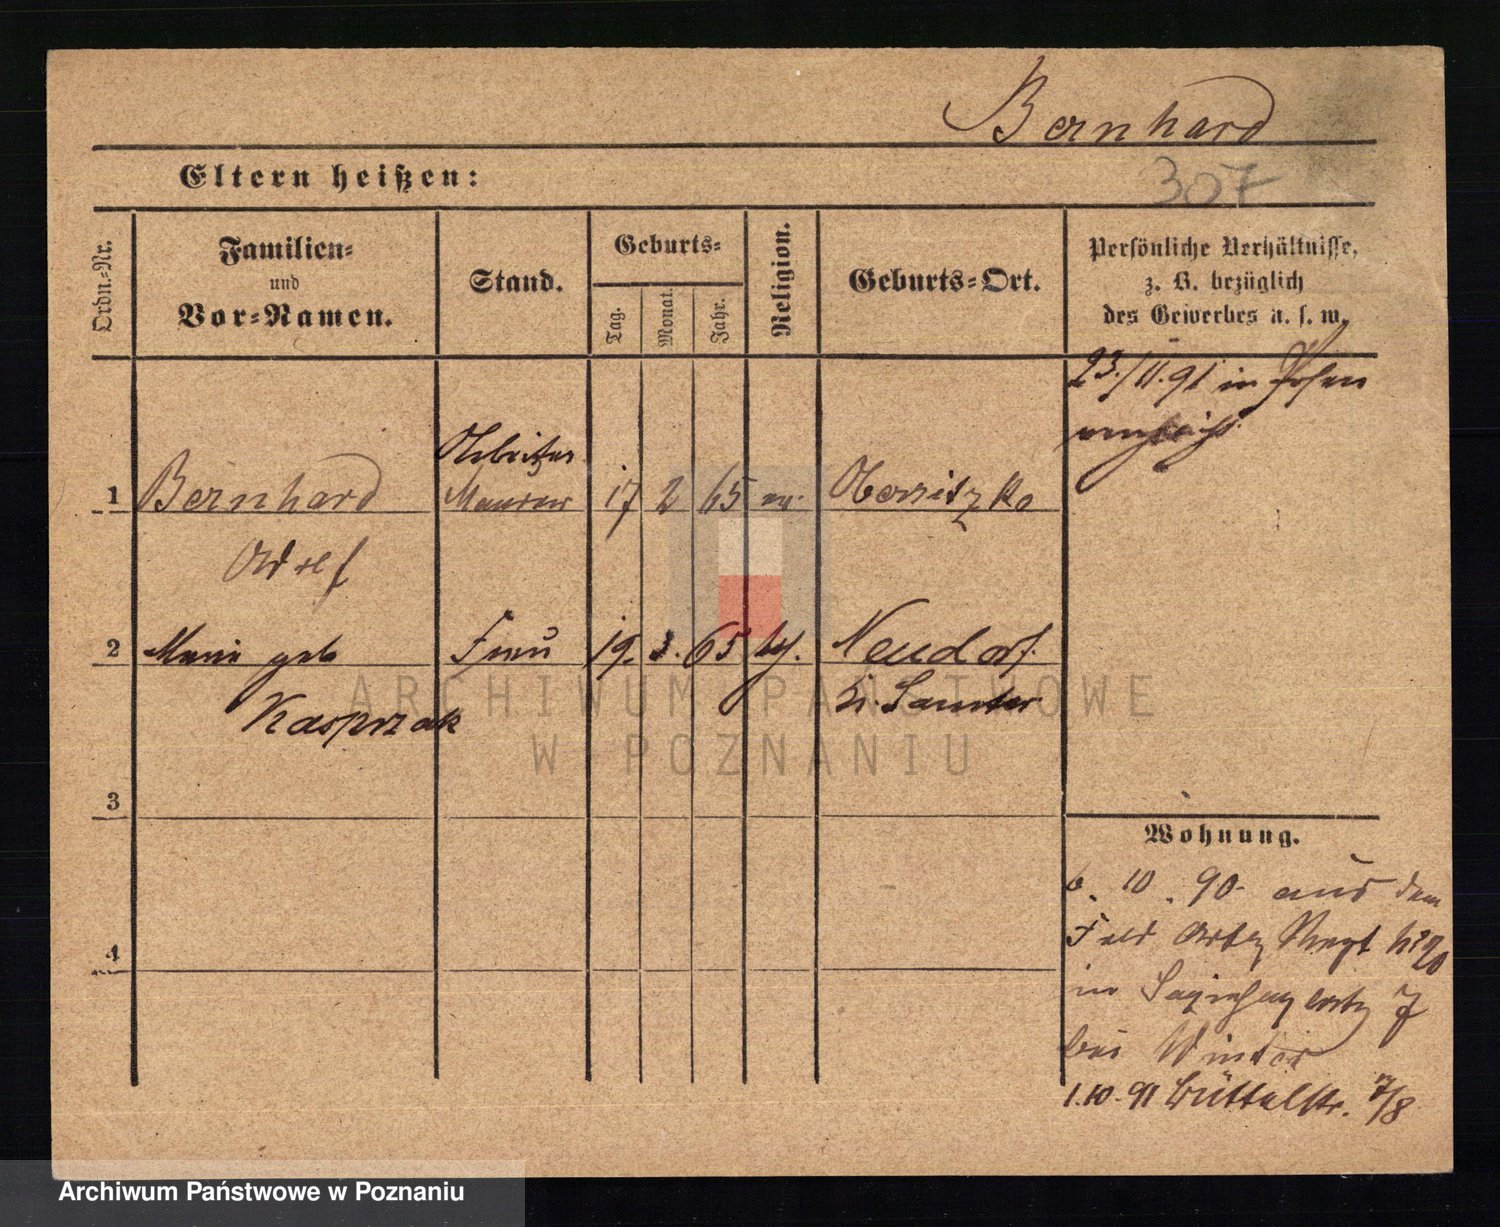 Bernhard
Eltern heißen:
307
Ordn.-Nr.
Familien-
und
Vor-Namen.
Stand.
Geburts-
Tag.
Monat.
Jahr.
Religion.
Geburts-Ort.
Persönliche Verhältnisse,
z. B. bezüglich
des Gewerbes u. s. w.
23./11.91 in Posen
Arbeiter
1 Bernhard Maurer 17 2 65 ev. Obersitzko
Adolf
2 Marie geb Frau 19. 3. 65 kth. Neudorf
Kasprzak Kr. Samter
3
4
Wohnung.
6. 10. 90 aus dem
Feld Arty Regt No 20
in 7
bei Winter
1.10.91 Büttelstr. 7/8
ARCHIWUM PAŃSTWOWE
W POZNANIU
Archiwum Państwowe w Poznaniu